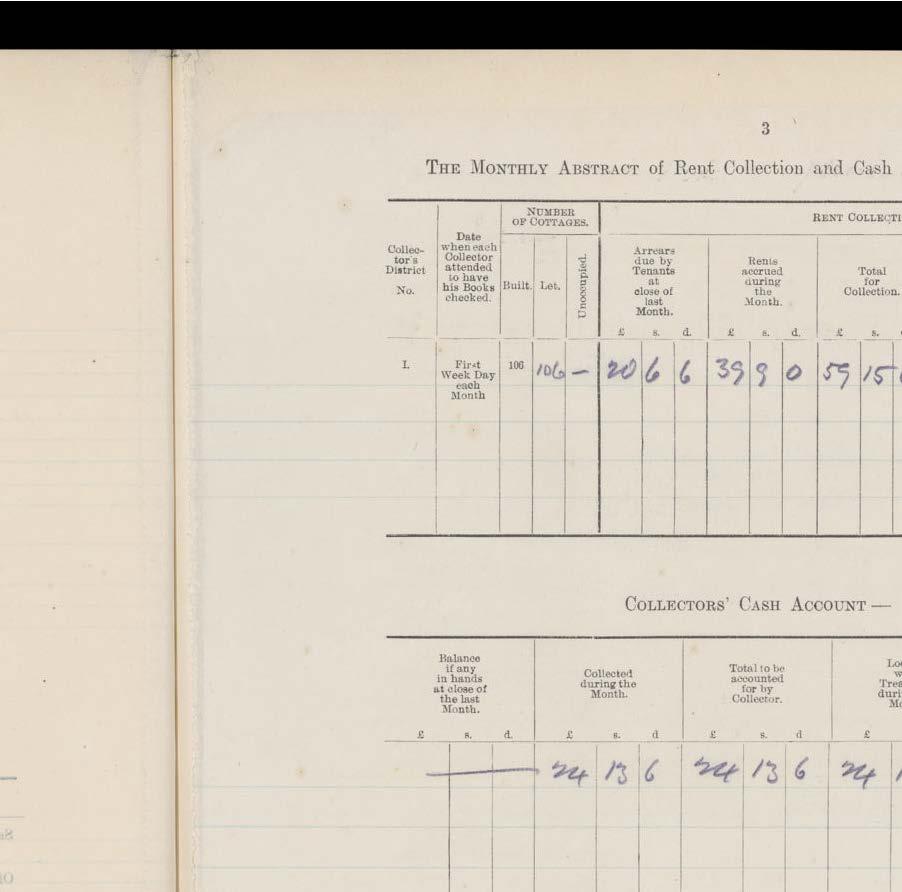 3
THE MONTHLY ABSTRACT of Rent Collection and Cash
Collec-
tor's
District
No.
Date
when each
Collector
attended
to have
his Books
checked.
NUMBER
OF COTTAGES.
Built.
Let.
Unoccupied.
RENT COLLECTI
Arrears
due by
Tenants
at
close of
last
Month.
Rents
accrued
during
the
Month.
Total
for
Collection.
£ s. d. £ s. d. £ s.
I. First 106 106 — 20 6 6 39 9 0 59 15
Week Day
each
Month
COLLECTORS' CASH ACCOUNT —
Balance
if any
in hands
at close of
the last
Month.
Collected
during the
Month.
Total to be
accounted
for by
Collector.
Lo
w
Trea
duri
Mo
£ s. d. £ s. d £ s. d £
— 24 13 6 24 13 6 24 1